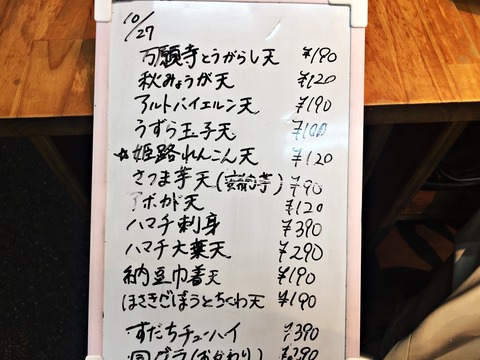 10/27
万願寺とうがらし天 ¥190
秋みょうが天 ¥120
アルトバイエルン天 ¥190
うずら玉子天 ¥100
☆姫路れんこん天 ¥120
さつま芋天(安納芋) ¥90
アボカド天 ¥120
ハマチ刺身 ¥390
ハマチ大葉天 ¥290
納豆巾着天 ¥190
ほさきごぼうとちくわ天 ¥190
すだちチューハイ ¥390
同グラ(おかわり) ¥290